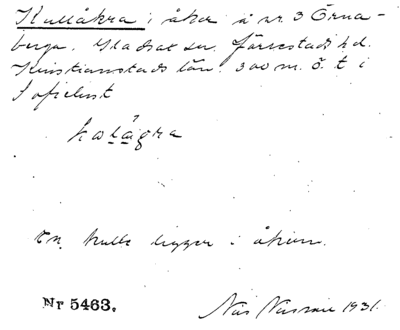 Kullåkra i åker å nr. 3 Örna-
berga. Gladsax sn. Järrestads hd.
Kristianstads län. 300 m. ö. t i
Sofielust
En kulle ligger i åkern.
Nr 5463.
1931.